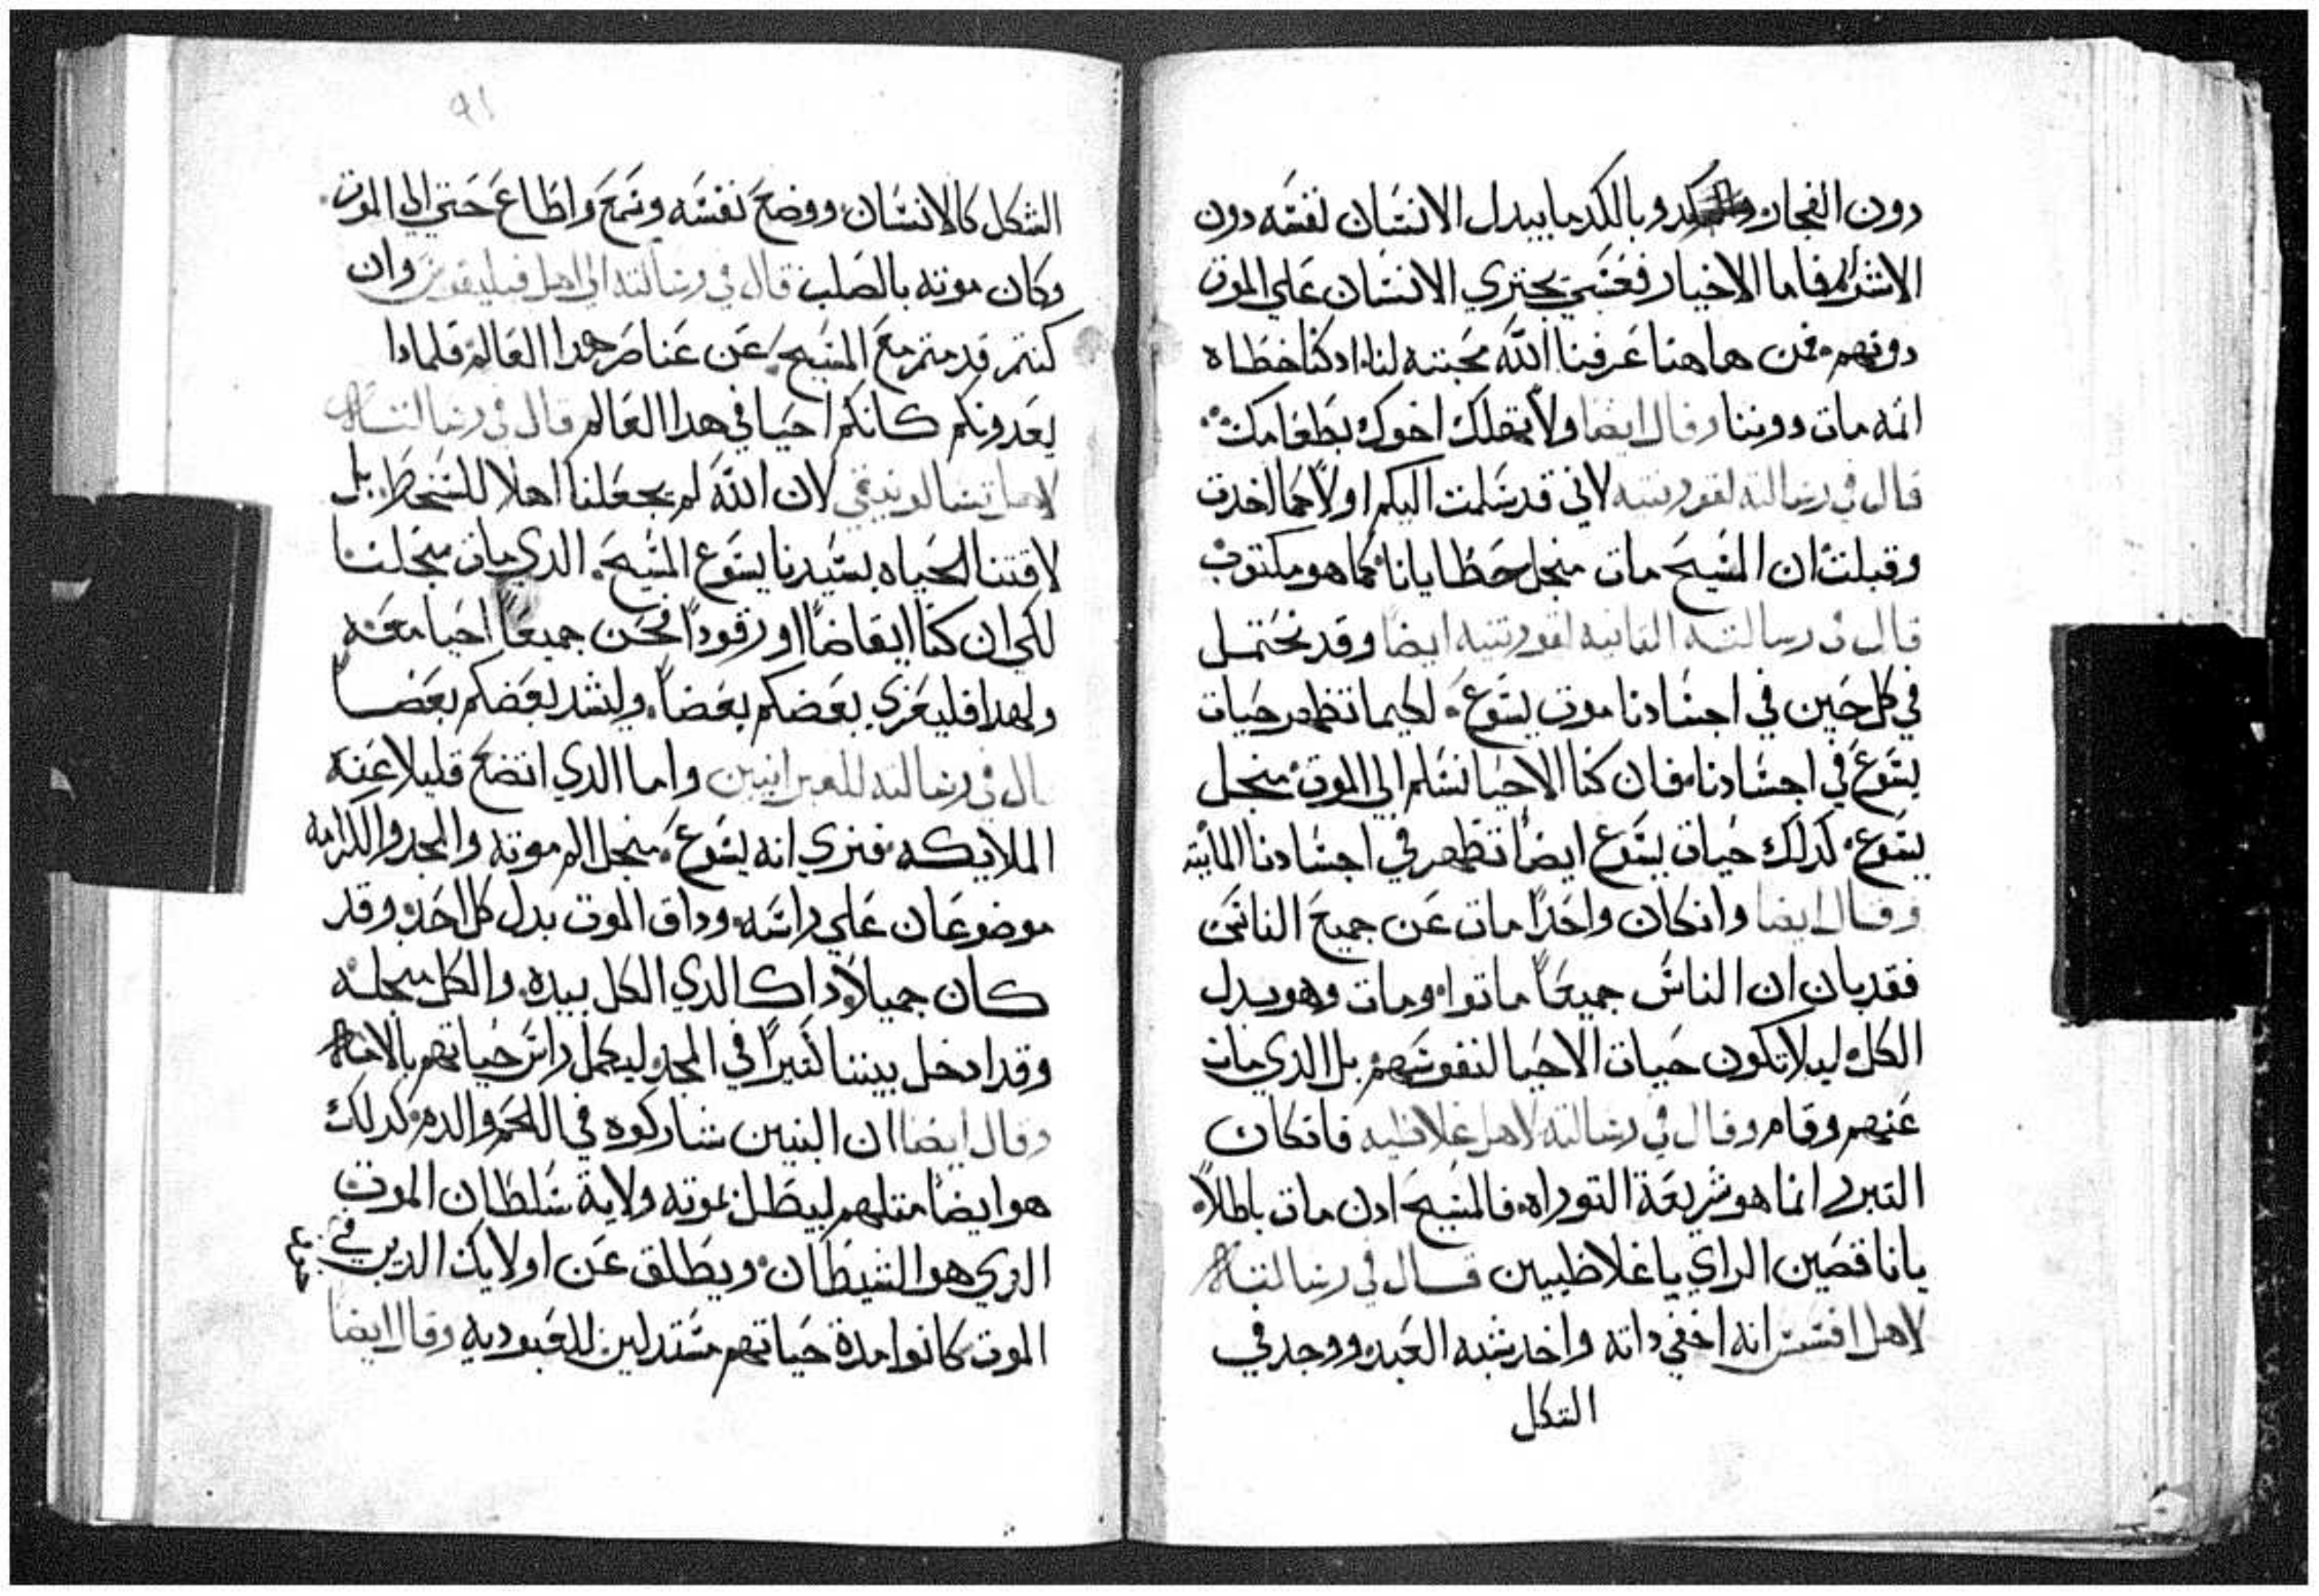 دون الفجار وبالكد ما يبدل الانسان نفسه دون
الاشرار فاما الاخيار فعسي يجتري الانسان علي الموت
دونهم. فمن هاهنا عرفنا الله محبته لنا. اد كنا خطاه
انه مات دوننا وقال ايضا ولا تهلك اخوك بطعامك
قال في رسالته لقورنتيه لاني قد سلمت اليكم اولا كما اخدت
وقبلت ان المسيح مات منجل خطايانا كما هو مكتوب
قال في رسالته التانيه لقورنتيه ايضا وقد نحتمل
في كل حين في اجسادنا موت يسوع. لكيما تظهر حيات
يسوع في اجسادنا. فان كنا الاحيا نسلم الي الموت منجل
يسوع. كدلك حيات يسوع ايضا تظهر في اجسادنا المايته
وقال ايضا وانكان واحدا مات عن جميع الناس
فقد بان ان الناس جميعا ماتوا. ومات وهو بدل
الكل. ليلا تكون حيات الاحيا لنفوسهم بل الدي مات
عنهم وقام وقال في رسالته لاهل غلاطيه فانكان
التبرر انما هو شريعة التوراه. فالمسيح ادن مات باطلا.
يا ناقصين الراي يا غلاطيين قال في رسالته
لاهل افسس انه اخفي داته واخد شبه العبد ووجد في
الشكل
٩١
الشكل كالانسان. ووضع نفسه وسمع واطاع حتي الي الموت.
وكان موته بالصلب قال في رسالته الي اهل فيليقوس وان
كنتم قد متم مع المسيح. عن عناصر هدا العالم. فلمادا
يعدونكم كانكم احيا في هدا العالم قال في رسالته
لاهل تسالونيقي لان الله لم يجعلنا اهلا للسخط. بل
لاقتنا الحياه بسيدنا يسوع المسيح. الدي مات منجلنا
لكي ان كنا ايقاضا او رقودا فنحن جميعا احيا معه
ولهدا فليعزي بعضكم بعضا. وليشد بعضكم بعضا
قال في رسالته للعبرانيين واما الدي اتضع قليلا عنه
الملايكه. فنري انه يسوع. منجل الم موته والمجد والكرامه
موضوعان علي راسه. وداق الموت بدل كل احد. وقد
كان جميلا. بداك الدي الكل بيده. والكل منجله
وقد ادخل بنينا كتيرا في المجد. ليكمل راس حياتهم بالالام
وقال ايضا ان البنين شاركوه في اللحم والدم. كدلك
هو ايضا متلهم ليبطل بموته ولاية سلطان الموت
الدي هو الشيطان. ويطلق عن اولايك الدين في
الموت كانوا مدة حياتهم مستدلين للعبوديه وقال ايضا